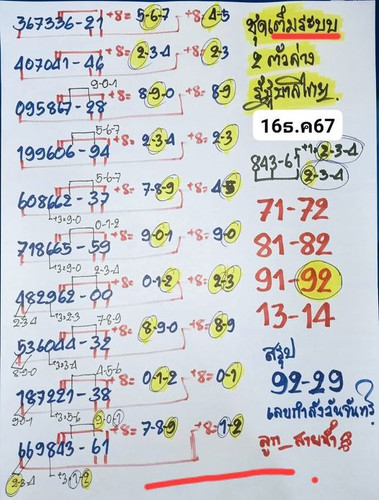 367336-21 +8= 5-6-7 +8= 4-5
407041-46 +8= 2-3-4 +8= 2-3
9-0-1
095867-28 +8= 8-9-0 +8= 8-9
5-6-7
199606-94 +8= 2-3-4 +8= 2-3
5-6-7
608662-37 +8= 7-8-9 +8= 4-5
+3=9-0 0-1-2
718665-59 +8= 9-0-1 +8= 9-0
+3=9-0 2-3-4
482962-00 +8= 0-1-2 +8= 2-3
2-3-4 +3=2-3 7-8-9
536044-32 +8= 8-9-0 +8= 8-9
8-9-0 +3=9-0 4-5-6
187221-38 +8= 0-1-2 +8= 0-1
9-0-1 9-0-1
669843-61 +8= 7-8-9 +8= 1-2
2-3-4 +3=1-2
ชุดเต็มระบบ
2 ตัวล่าง
รัฐบาลไทย.
16ธ.ค67
843-61 +1=2-3-4
2-3-4
71-72
81-82
91-92
13-14
สรุป
92-29
เลขกำลังวันจันทร์
ลูก_สายน้ำ